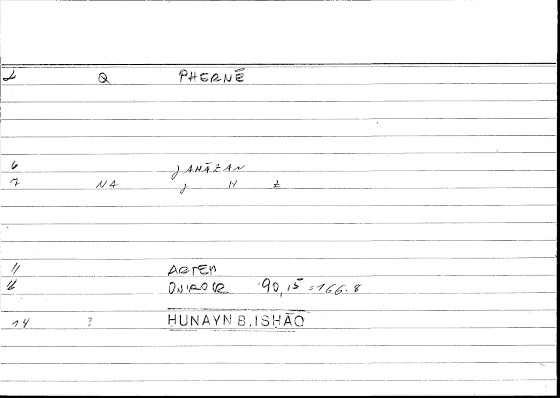 2 Q PHERNĒ
6 JAHĀZAN
7 NA J H Z
11 ARTEM
12 ONIROCR 90,15 = 166.8
14 ? HUNAYN B. ISHĀQ